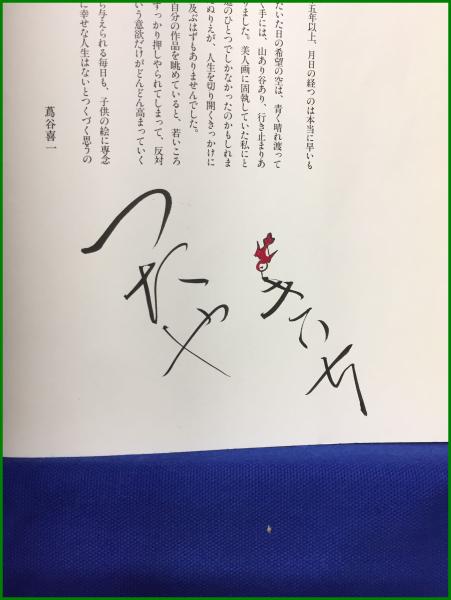 五年以上、月日の経つのは本当に早いも
だいた日の希望の空は、青く晴れ渡って
く手には、山あり谷あり、行き止まりあ
りました。美人画に固執していた私にと
道のひとつでしかなかったのかもしれま
ぬりえが、人生を切り開くきっかけに
及ぶはずもありませんでした。
自分の作品を眺めていると、若いころ
すっかり押しやられてしまって、反対
いう意欲だけがどんどん高まっていく
ら与えられる毎日も、子供の絵に専念
に幸せな人生はないとつくづく思うの
蔦谷喜一
つたや
きいち